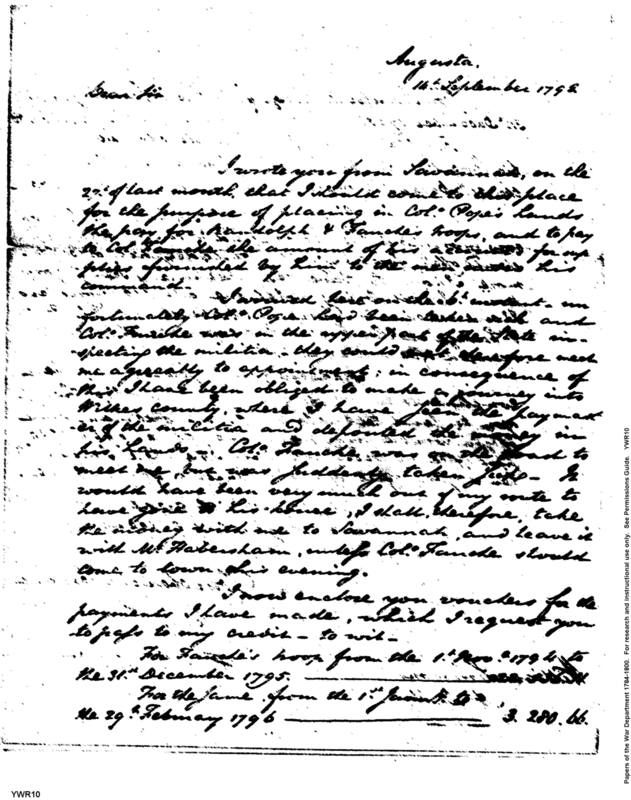 Augusta.
14th September 1796
Dear Sir
I wrote you from Savannah, on the
27th of last month, that I should come to this place
for the purpose of placing in Colo. Pope's hands
the pay for Randolph & Fauche's troops, and to pay
to Col. Fauche the amount of his for sup
plies furnished by him to the men under his
command.
I arrived here on the instant - un
fortunately Colo. Pope had been taken sick and
Colo. Fauche was in the upper part of the State in-
specting the militia - they could not therefore meet
me agreeably to appointment; in consequence of
this I have been obliged to make a journey into
Wilkes county, where I have seen the paymast
er of the militia and deposited the money in
his hands - Colo. Fauche was on the road to
meet me, but was suddenly taken - It
would have been very much out of my route to
have gone to his house, I shall, therefore, take
the money with me to Savannah, and leave it
with Mr. Habersham, unless Colo. Fauche should
come to town this evening.
I now enclose you vouchers for the
payments I have made, which I request you
to pass to my credit - to wit -
For Fauche's troop from the 1st Novr. 1794 to
the 31st December 1795.
For the same from the 1st to
the 29th February 1796 3.280.66.
YWR10
Papers of the War Department 1784-1800. For research and instructional use only. See Permissions Guide. YWR10